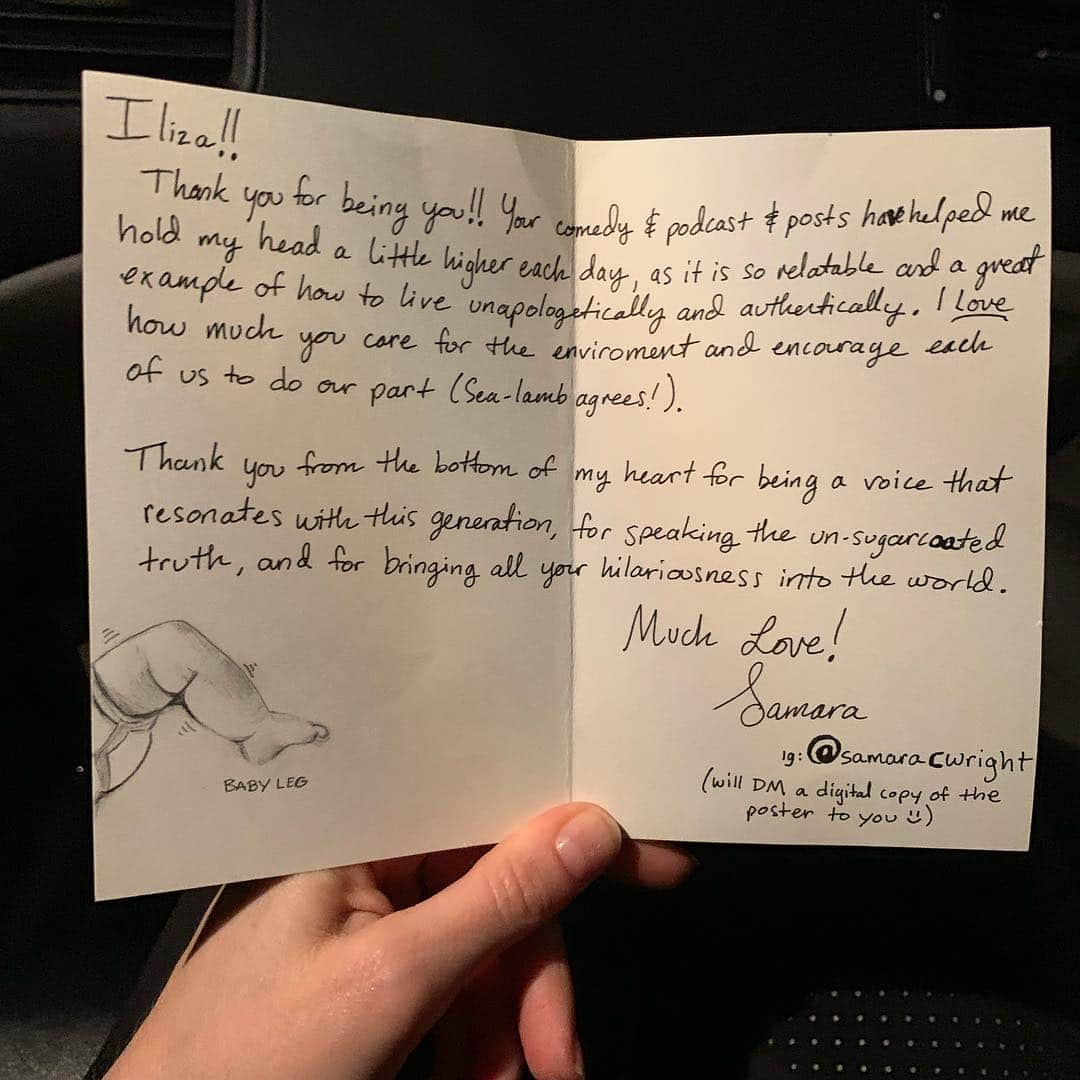 Iliza!!
Thank you for being you!! Your comedy & podcast & posts have helped me
hold my head a little higher each day, as it is so relatable and a great
example of how to live unapologetically and authentically. I Love
how much you care for the enviroment and encourage each
of us to do our part (Sea-lamb agrees!).
Thank you from the bottom of my heart for being a voice that
resonates with this generation, for speaking the un-sugarcoated
truth, and for bringing all your hilariousness into the world.
Much Love!
Samara
ig: @samaracwright
(will DM a digital copy of the
poster to you :))
BABY LEG